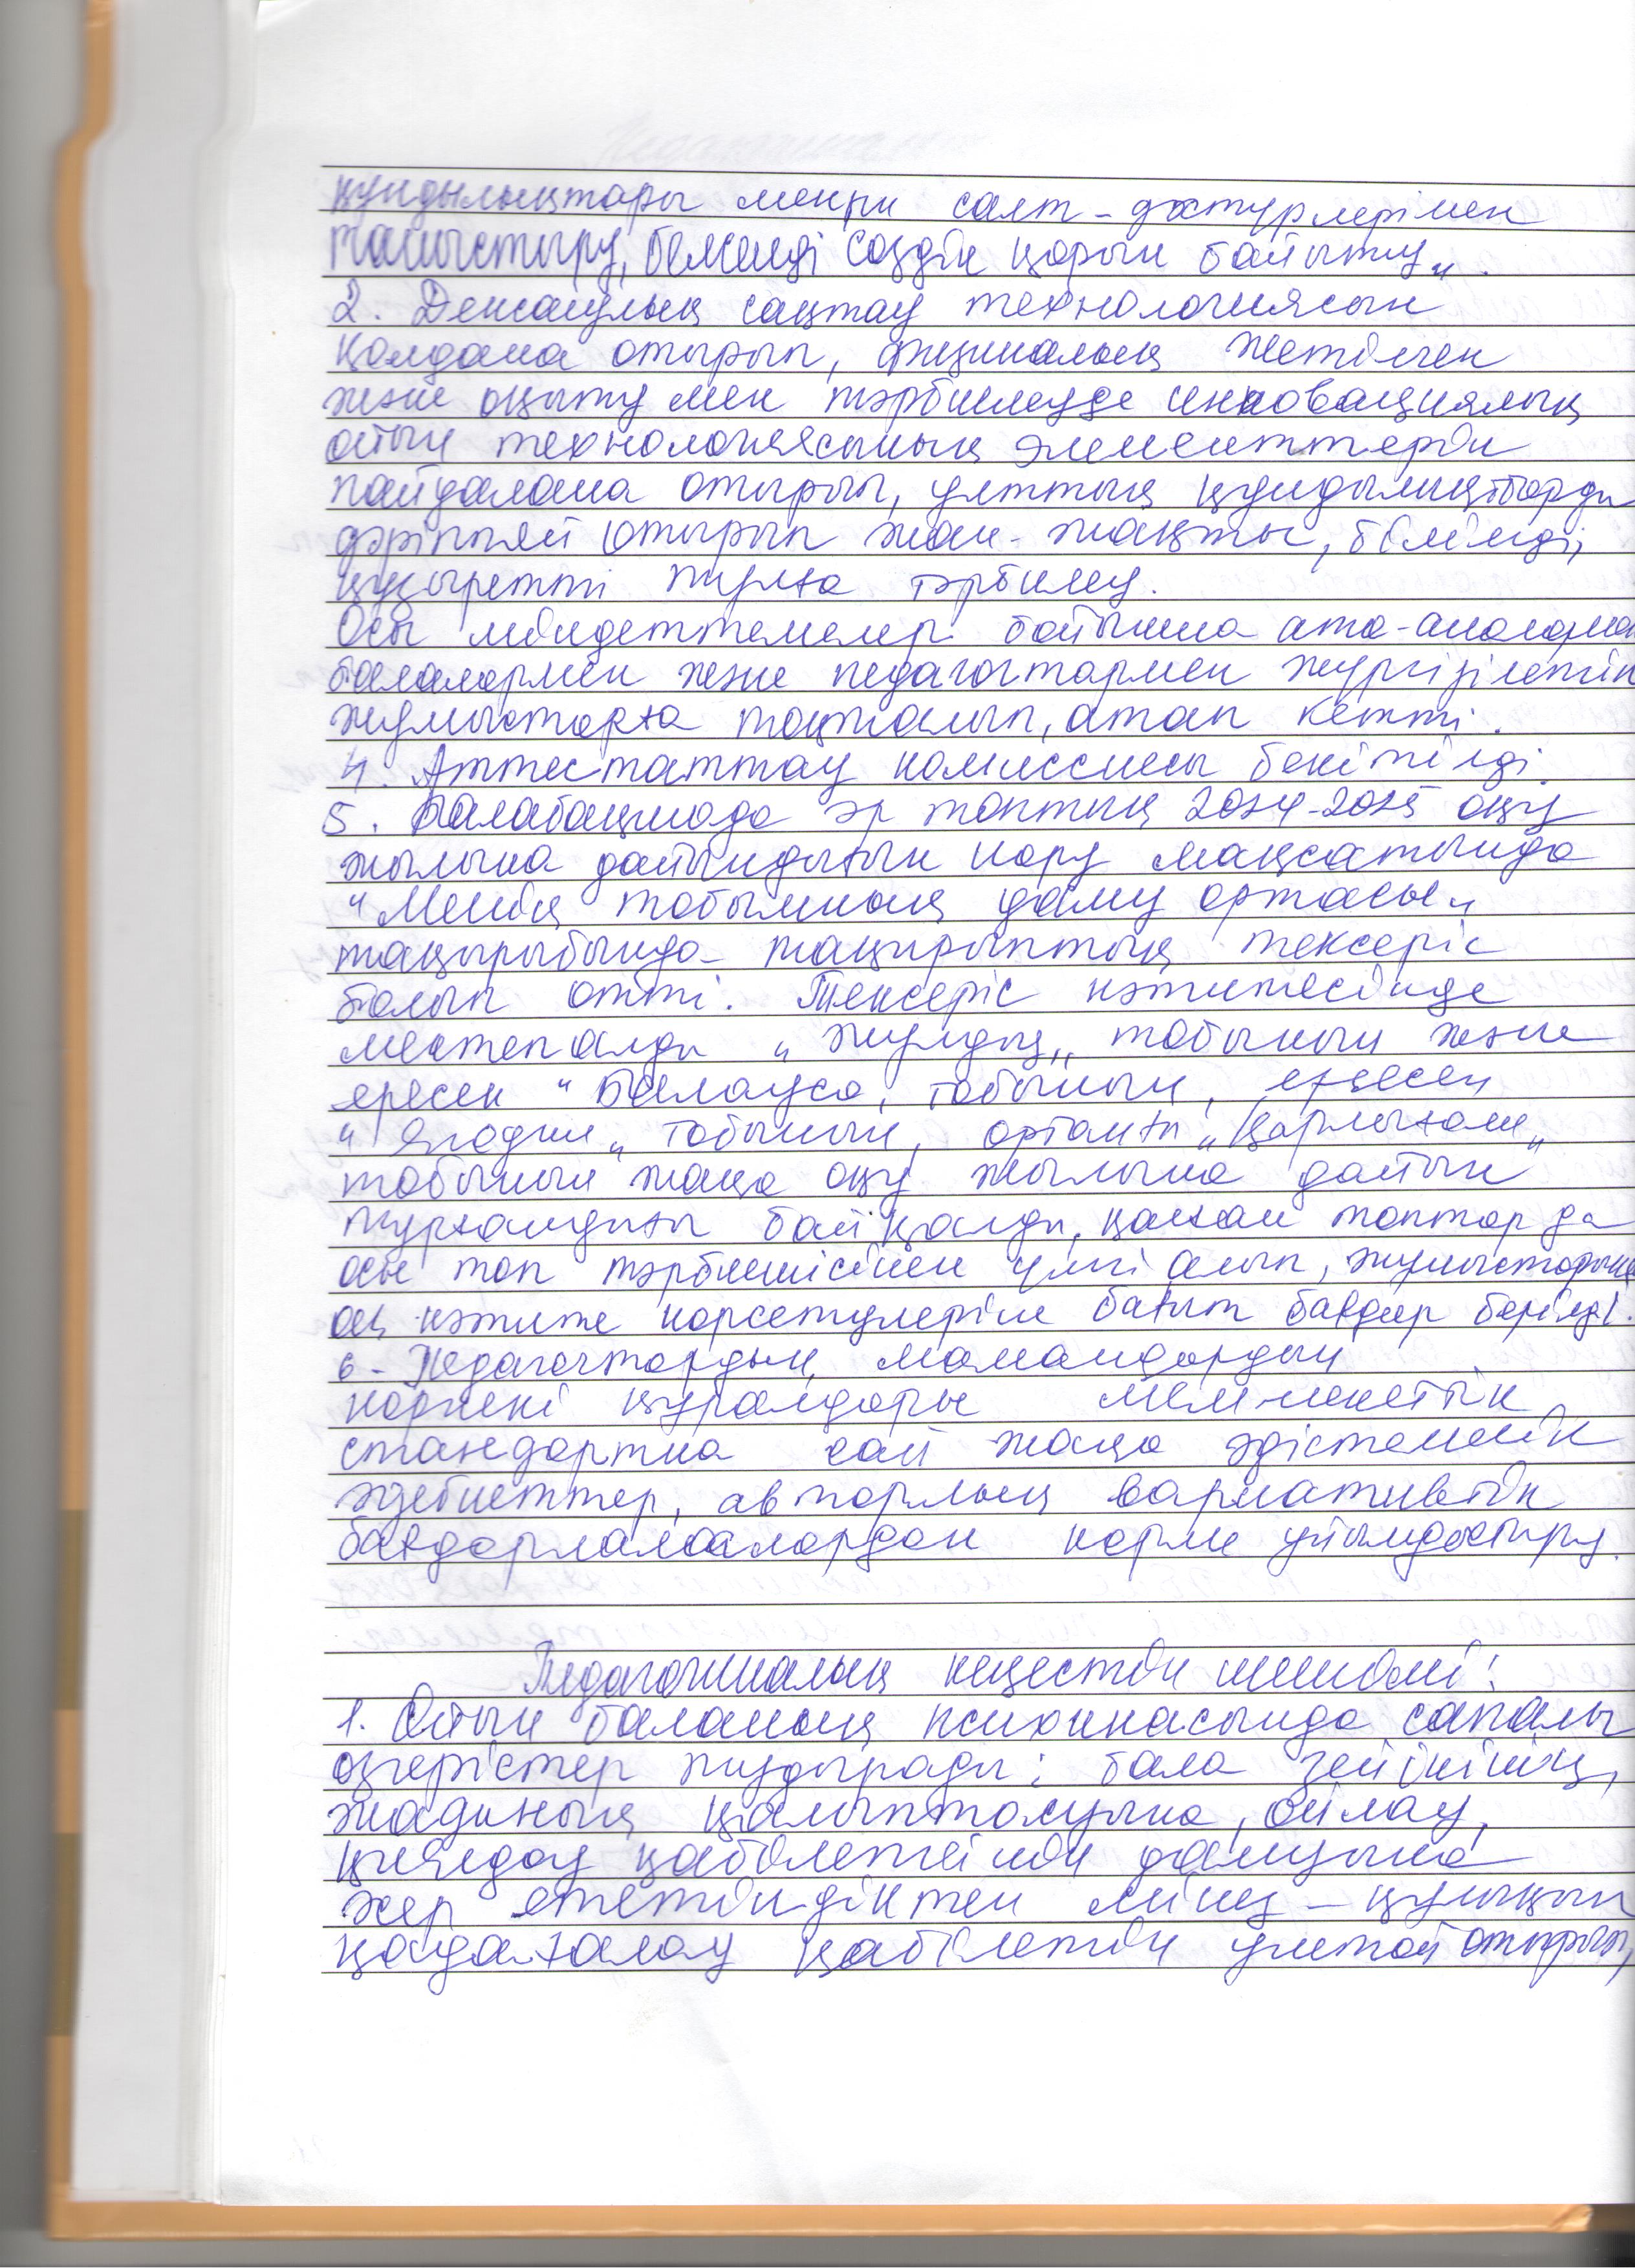 құндылықтары мен салт-дәстүрлерімен
таныстыру, белсенді сөздік қорын байыту".
2. Денсаулық сақтау технологиясын
қолдана отырып, физикалық жетілген
және оқыту мен тәрбиелеуде инновациялық
ойын технологиясының элементтерін
пайдалана отырып, ұлттық құндылықтарды
дәріптей отырып жан-жақты, білімді,
құзыретті тұлға тәрбиелеу.
Осы міндеттемелер бойынша ата-аналармен
балалармен және педагогтармен жүргізілетін
жұмыстарға тоқталып, атап кетті.
4. Аттестаттау комиссиясы бекітілді.
5. Балабақшада әр топтың 2024-2025 оқу
жылына дайындығын көру мақсатында
"Менің тобымның даму ортасы"
тақырыбында тақырыптық тексеріс
болып өтті. Тексеріс нәтижесінде
мектепалды "Жұлдыз" тобының және
ересек "Балауса" тобының, ересек
"Ягодка" тобының, ортаңғы "Қарлығаш"
тобының жаңа оқу жылына дайын
тұрғандығы байқалды, қалған топтар да
осы топ тәрбиешісінен үлгі алып, жұмыстарына
оң нәтиже көрсетулеріне бағыт бағдар берілді.
6- Педагогтардың, мамандардың
көрнекі құралдары мемлекеттік
стандартқа сай жаңа әдістемелік
әдебиеттер, авторлық вариативтік
бағдарламалардан көрме ұйымдастыру.
Педагогикалық кеңестің шешімі:
1. Ойын баланың психикасында сапалы
өзгерістер туздырады: бала зейінінің,
жадының қалыптасуына, ойлау,
қиялдау қабілетінің дамуына
әсер ететіндіктен мінез-құлқын
қадағалау қабілетін ұштай отырып,